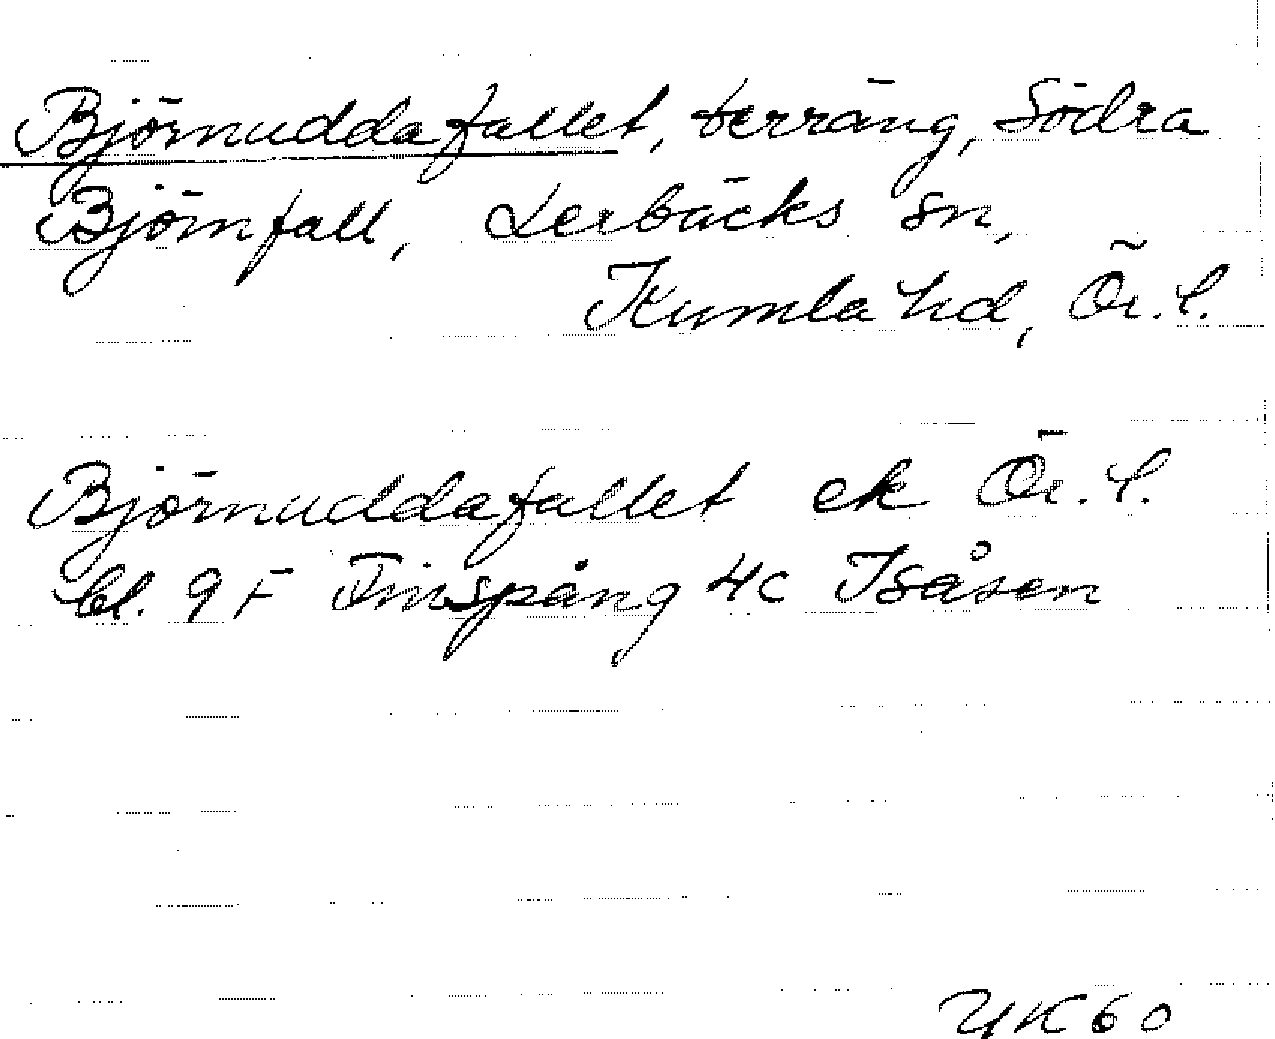 Björnuddafallet, terräng, Södra
Björnfall, Lerbäcks sn,
Kumla hd, Ör. l.
Björnuddafallet ek Ör. l.
bl. 9F Finspång 4c Isåsen
YK60